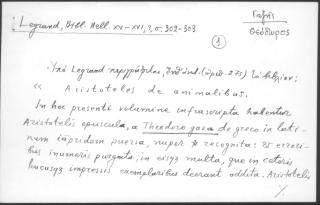 Legrand, Bibl. Hell. XV-XVI, 3, σ. 302-303
Γαζῆς
Θεόδωρος
1
Ὑπό Legrand περιγράφεται, ἐνθ' ἀνωτ. (ἀριθ. 275)
« Aristoteles de animalibus.
In hoc presenti volumine infrascripta habentur
Aristotelis opuscula, a Theodoro gaza de greco in lati-
num iāpridom nuper recognita: erroribus
inumeris purgata, in eisq3 multa, que in ceteris
hucusq3 impressis exemplaribus deerant addita. Aristotelis
./.